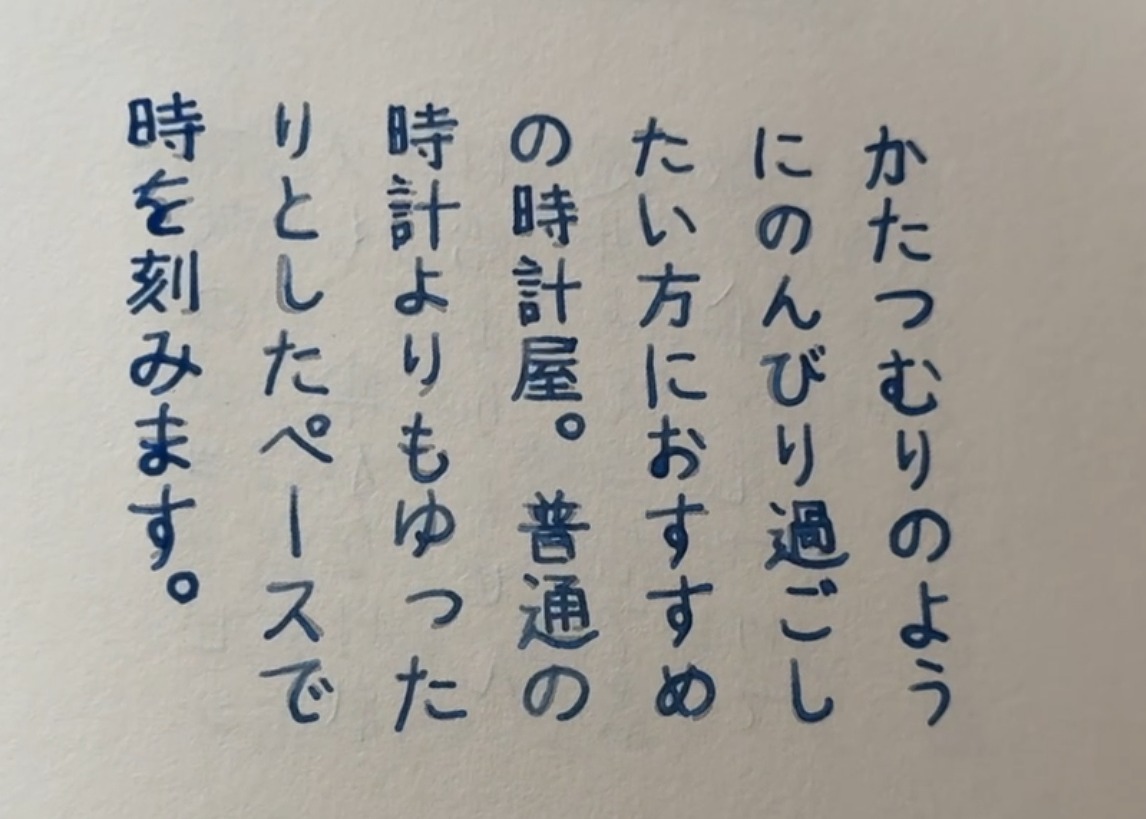 かたつむりのよう
にのんびり過ごし
たい方におすすめ
の時計屋。普通の
時計よりもゆった
りとしたペースで
時を刻みます。